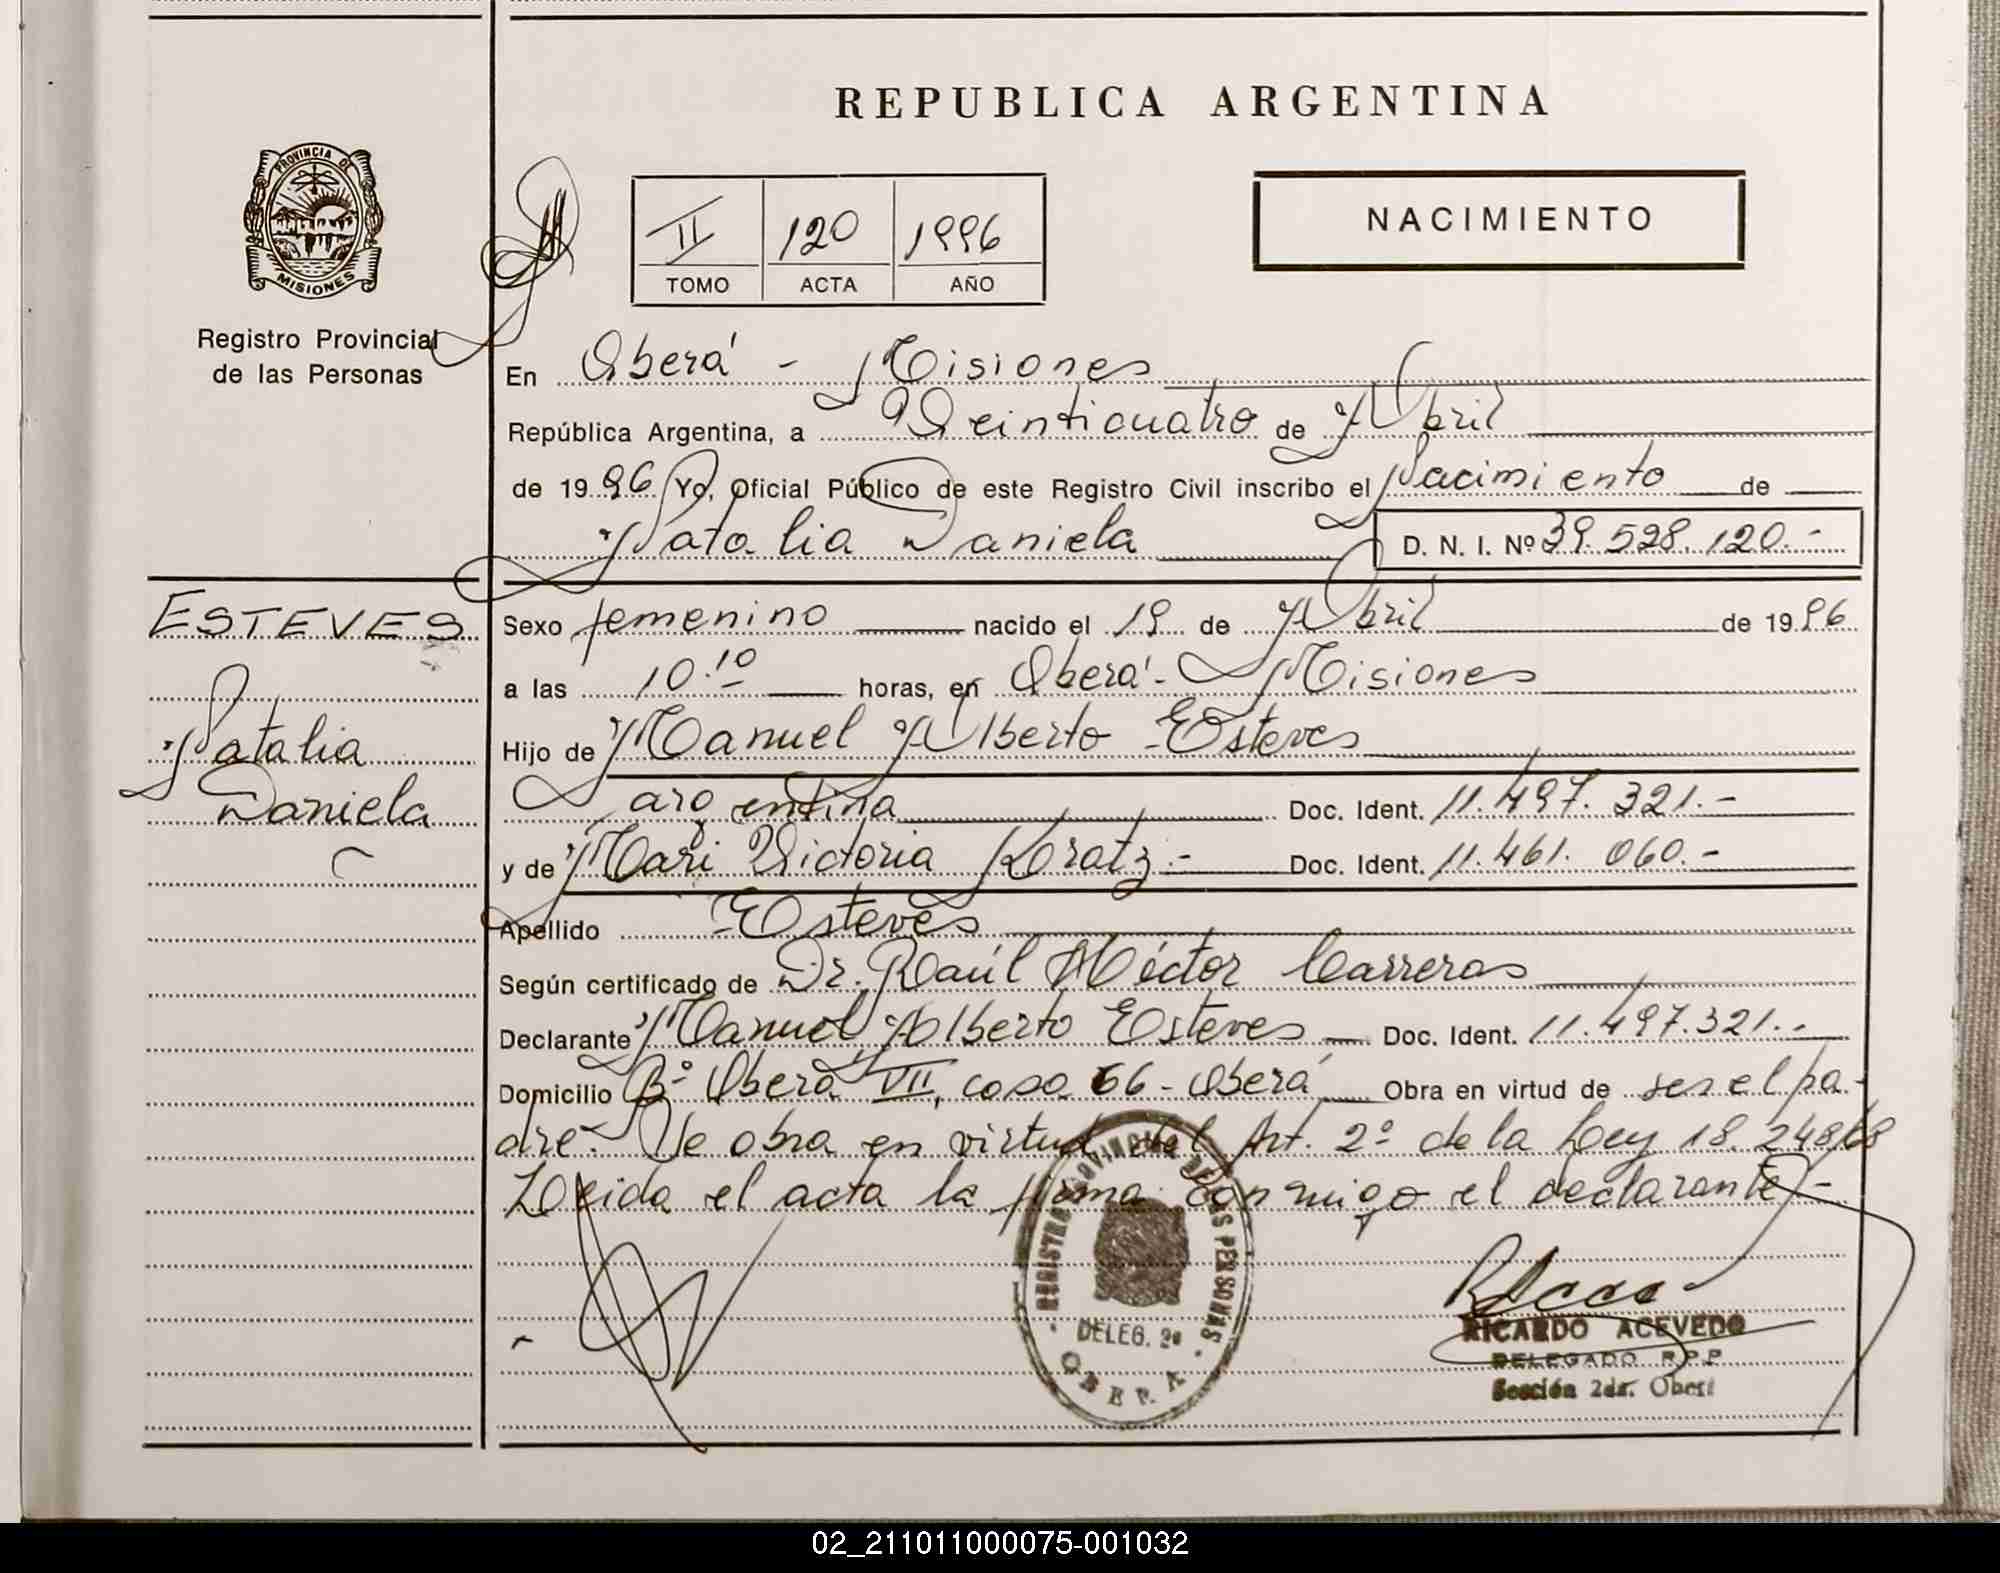 REPUBLICA ARGENTINA
PROVINCIA DE
MISIONES
Registro Provincial
de las Personas
II 120 1996
TOMO ACTA AÑO
NACIMIENTO
En Oberá - Misiones
República Argentina, a Veinticuatro de Abril
de 1996 Yo, Oficial Público de este Registro Civil inscribo el Nacimiento de
Natalia Daniela D. N. I. Nº 39.528.120.-
ESTEVES
Natalia
Daniela
Sexo femenino nacido el 19 de Abril de 1996
a las 10.10 horas, en Oberá - Misiones
Hijo de Manuel Alberto Esteves
argentina Doc. Ident. 11.497.321.-
y de Mari Victoria Koratz.- Doc. Ident. 11.461.060.-
Apellido Esteves
Según certificado de Dr. Raúl Héctor Carreras
Declarante Manuel Alberto Esteves Doc. Ident. 11.497.321.-
Domicilio Bº Oberá VII, casa 66 - Oberá Obra en virtud de ser el pa-
dre.- Se obra en virtud del Art. 2º de la Ley 18.248/
Leida el acta la firma conmigo el declarante.-
REGISTRO PROVINCIAL DE LAS PERSONAS
DELEG. 2a
OBERA
RICARDO ACEVEDO
DELEGADO R.P.P
Sección 2da. Oberá
02_211011000075-001032